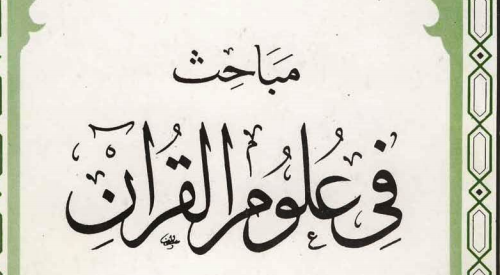 مَبَاحِث
فِي عُلُومِ الْقُرْآنِ